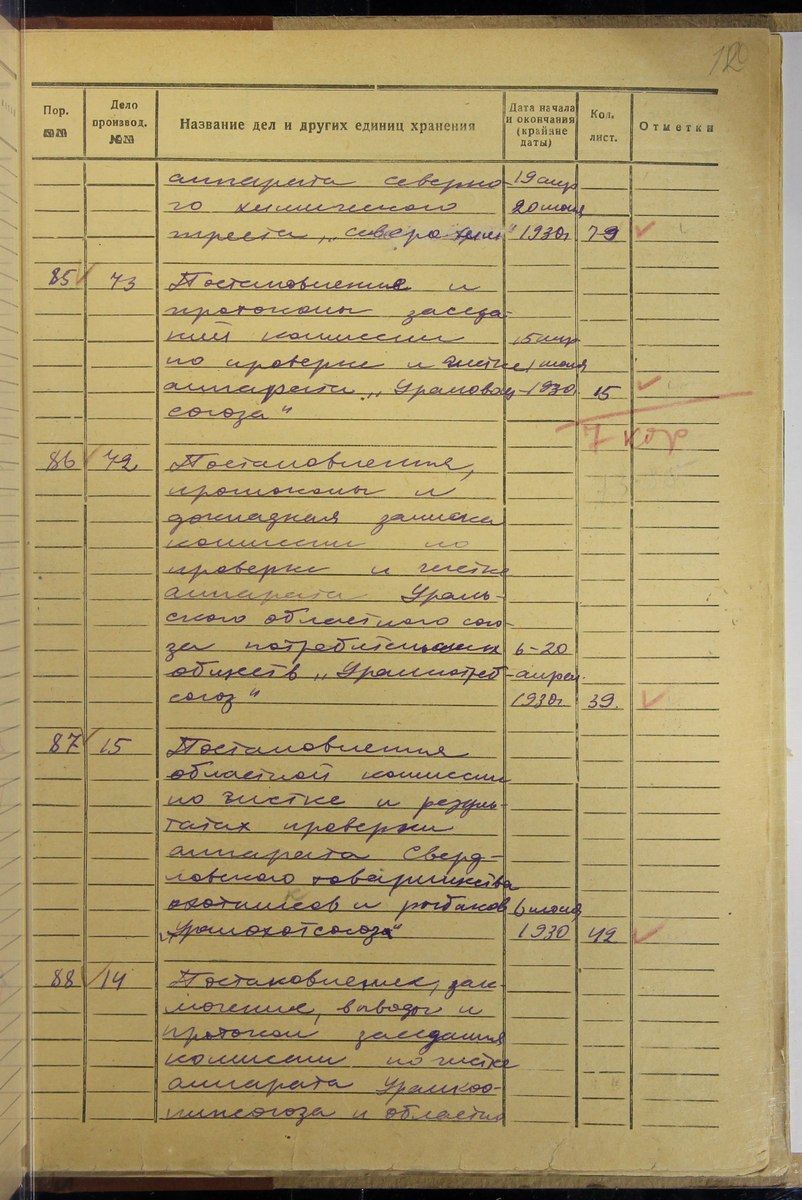 120
Пор. №№
Дело производ. №№
Название дел и других единиц хранения
Дата начала и окончания (крайние даты)
Кол. лист.
Отметки
аппарата северно- 19 апр
го химического 20 июня
треста „Северохим" 1930г 79
85 73 Постановление и
протоколы заседа-
ний комиссии 15 апр
по проверке и чистке 1 июня
аппарата „Ураловац- 1930. 15
союза"
7 кор
86 72 Постановления,
протоколы и
докладная записка
комиссии по
проверке и чистке
аппарата Ураль-
ского областного сою-
за потребительских 6-20
обществ „Уралпотреб- апрел.
союз" 1930г 39.
87 15 Постановления
областной комиссии
по чистке и резуль-
татах проверки
аппарата Сверд-
ловского товарищества
охотников и рыбаков 6 июня
„Уралохотсоюза" 1930 42
88 14 Постановление, зак-
лючение, выводы и
протокол заседания
комиссии по чистке
аппарата Уралкоо-
пинсоюза и областно